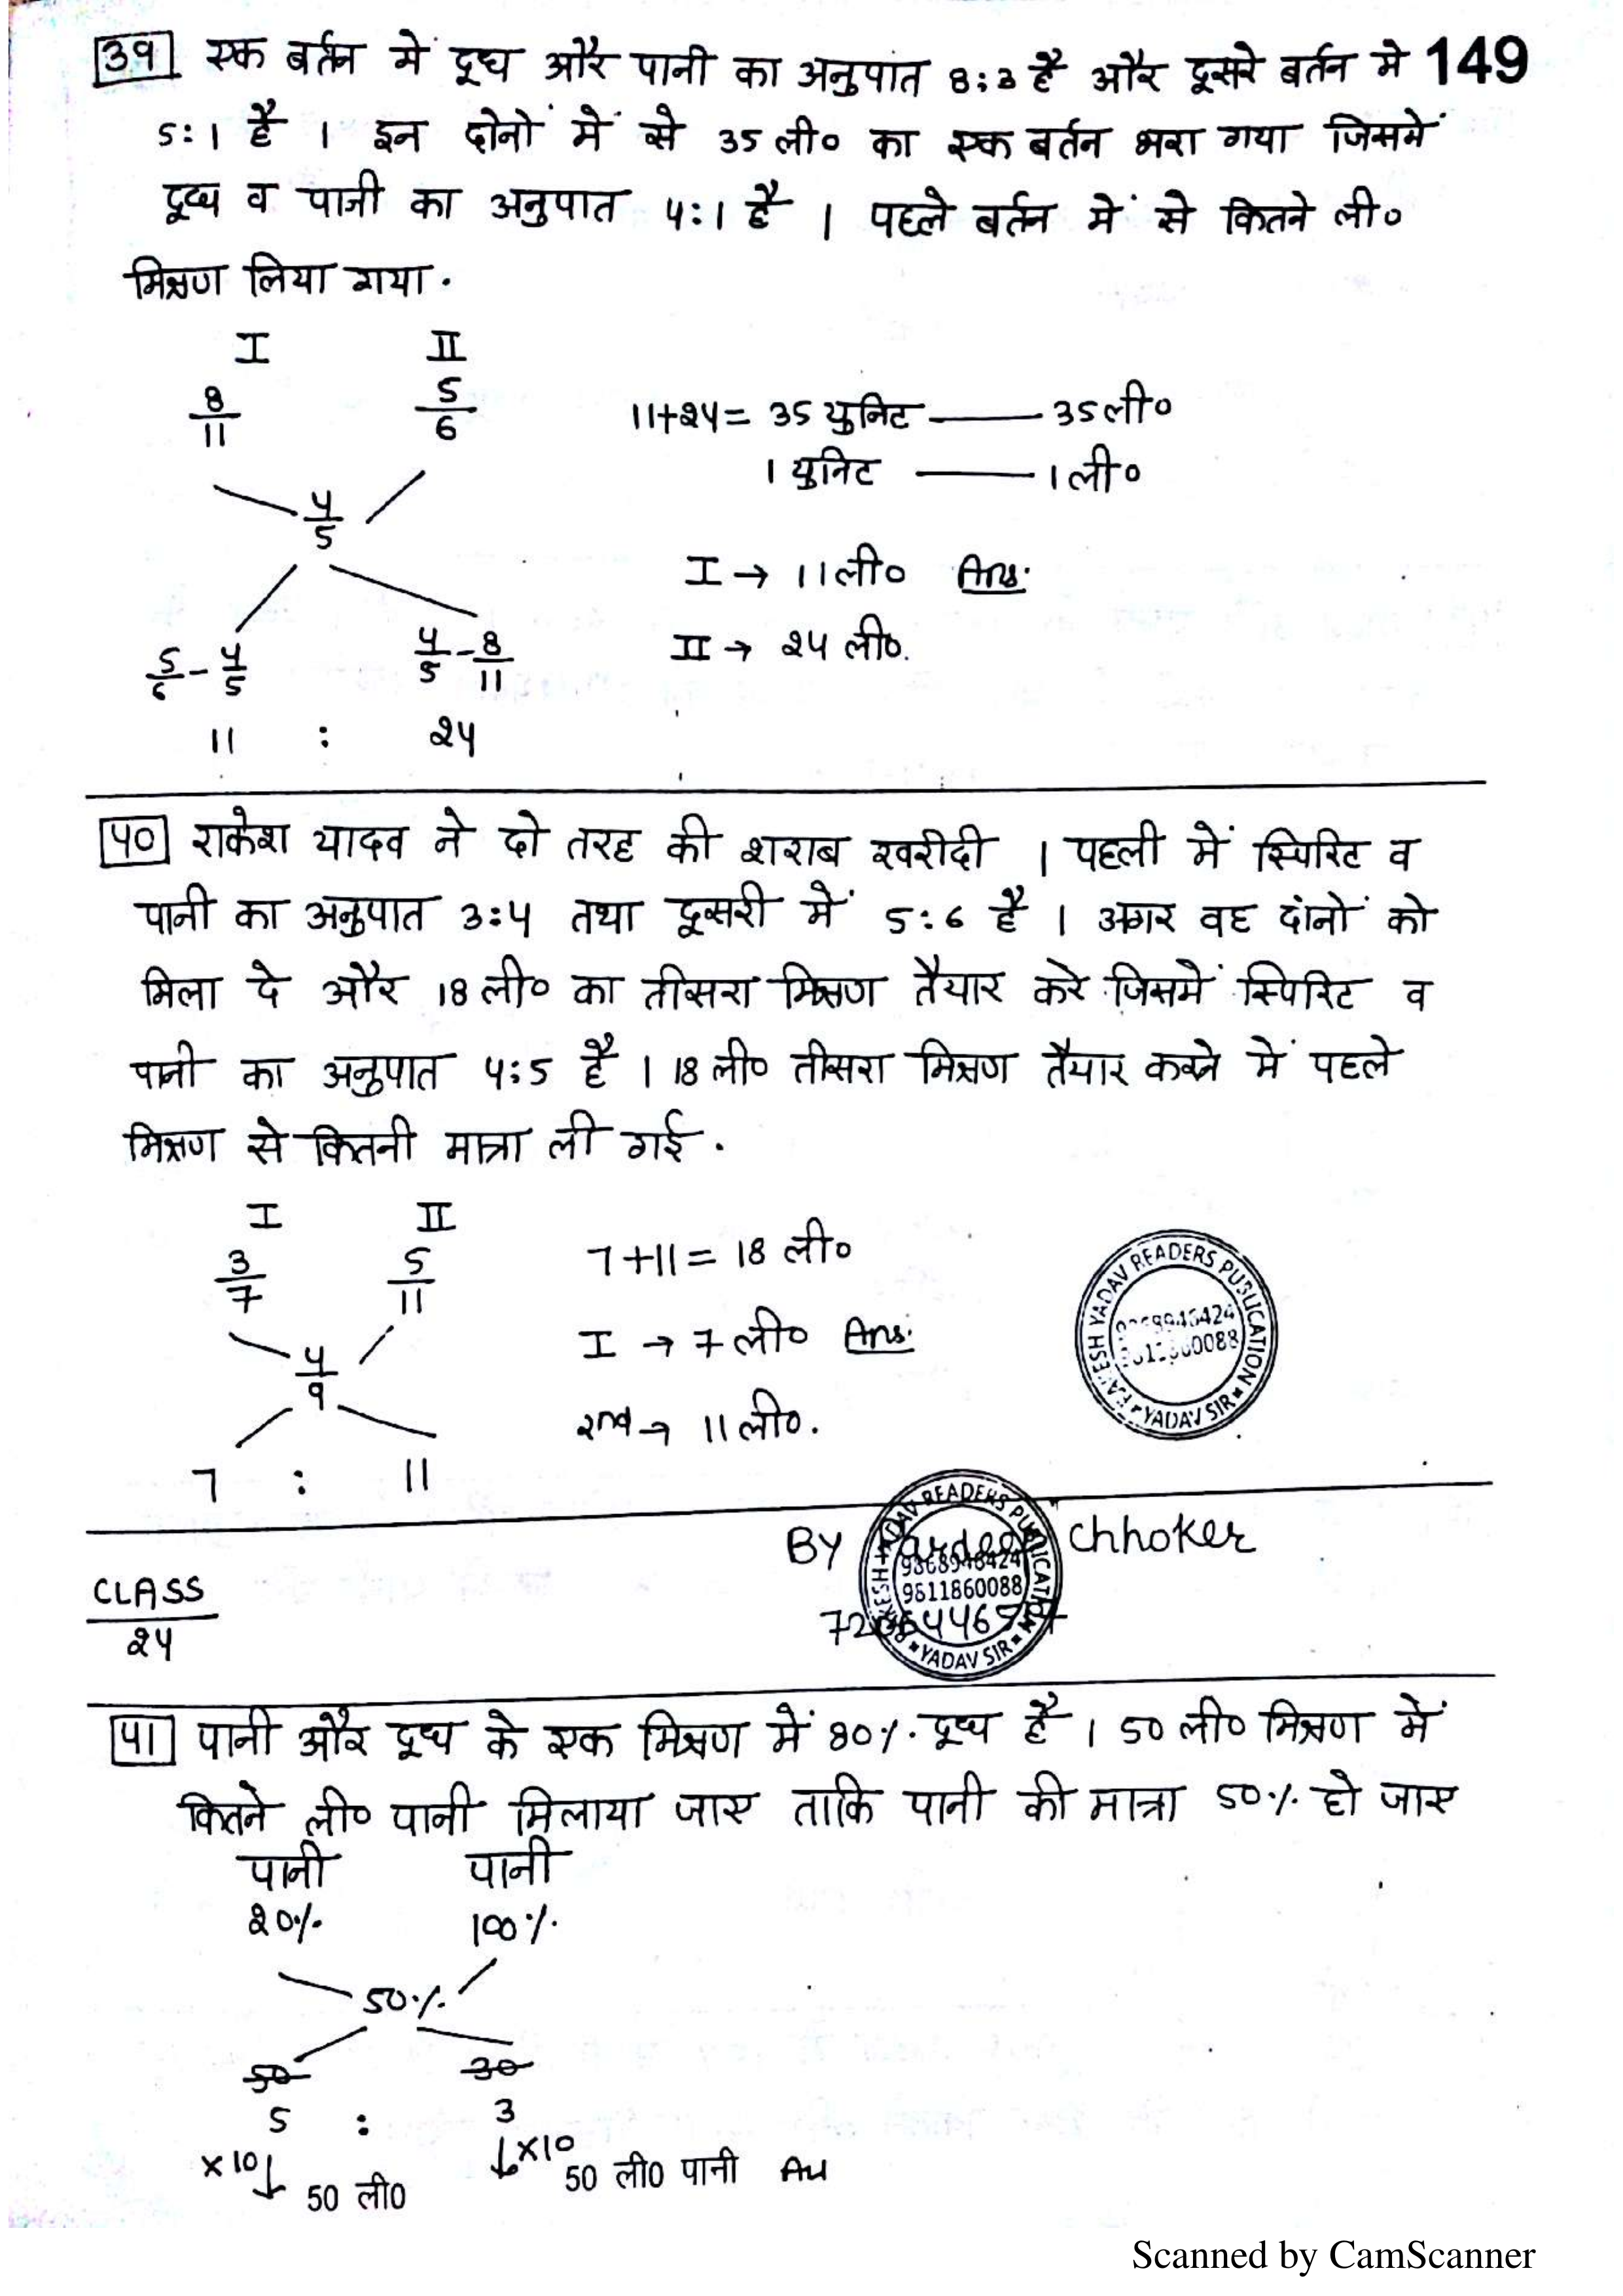 39 एक बर्तन में दूध और पानी का अनुपात 8:3 है और दूसरे बर्तन मे 149
5:1 है । इन दोनों में से 35 ली० का एक बर्तन भरा गया जिसमें
दूध व पानी का अनुपात 4:1 है । पहले बर्तन में से कितने ली०
मिश्रण लिया गया .
I II
8/11 5/6
11+24= 35 युनिट —— 35 ली०
1 युनिट —— 1 ली०
4/5
I → 11 ली० Ans.
5/6 - 4/5 4/5 - 8/11
II → 24 ली०.
11 : 24
40 राकेश यादव ने दो तरह की शराब खरीदी । पहली में स्पिरिट व
पानी का अनुपात 3:4 तथा दूसरी में 5:6 है । अगर वह दोनों को
मिला दे और 18 ली० का तीसरा मिश्रण तैयार करे जिसमें स्पिरिट व
पानी का अनुपात 4:5 है । 18 ली० तीसरा मिश्रण तैयार करने में पहले
मिश्रण से कितनी मात्रा ली गई .
I II
3/7 5/11
7+11 = 18 ली०
4/9
I → 7 ली० Ans.
2nd → 11 ली०.
7 : 11
YADAV READERS PUBLICATION
YADAV SIR
BY Chhoker
YADAV READERS PUBLICATION
9811860088
YADAV SIR
CLASS
24
41 पानी और दूध के एक मिश्रण में 80% दूध है । 50 ली० मिश्रण में
कितने ली० पानी मिलाया जाए ताकि पानी की मात्रा 50% हो जाए
पानी पानी
20% 100%
50%
50 30
5 : 3
×10↓ 50 ली0 ↓×10 50 ली0 पानी
Scanned by CamScanner